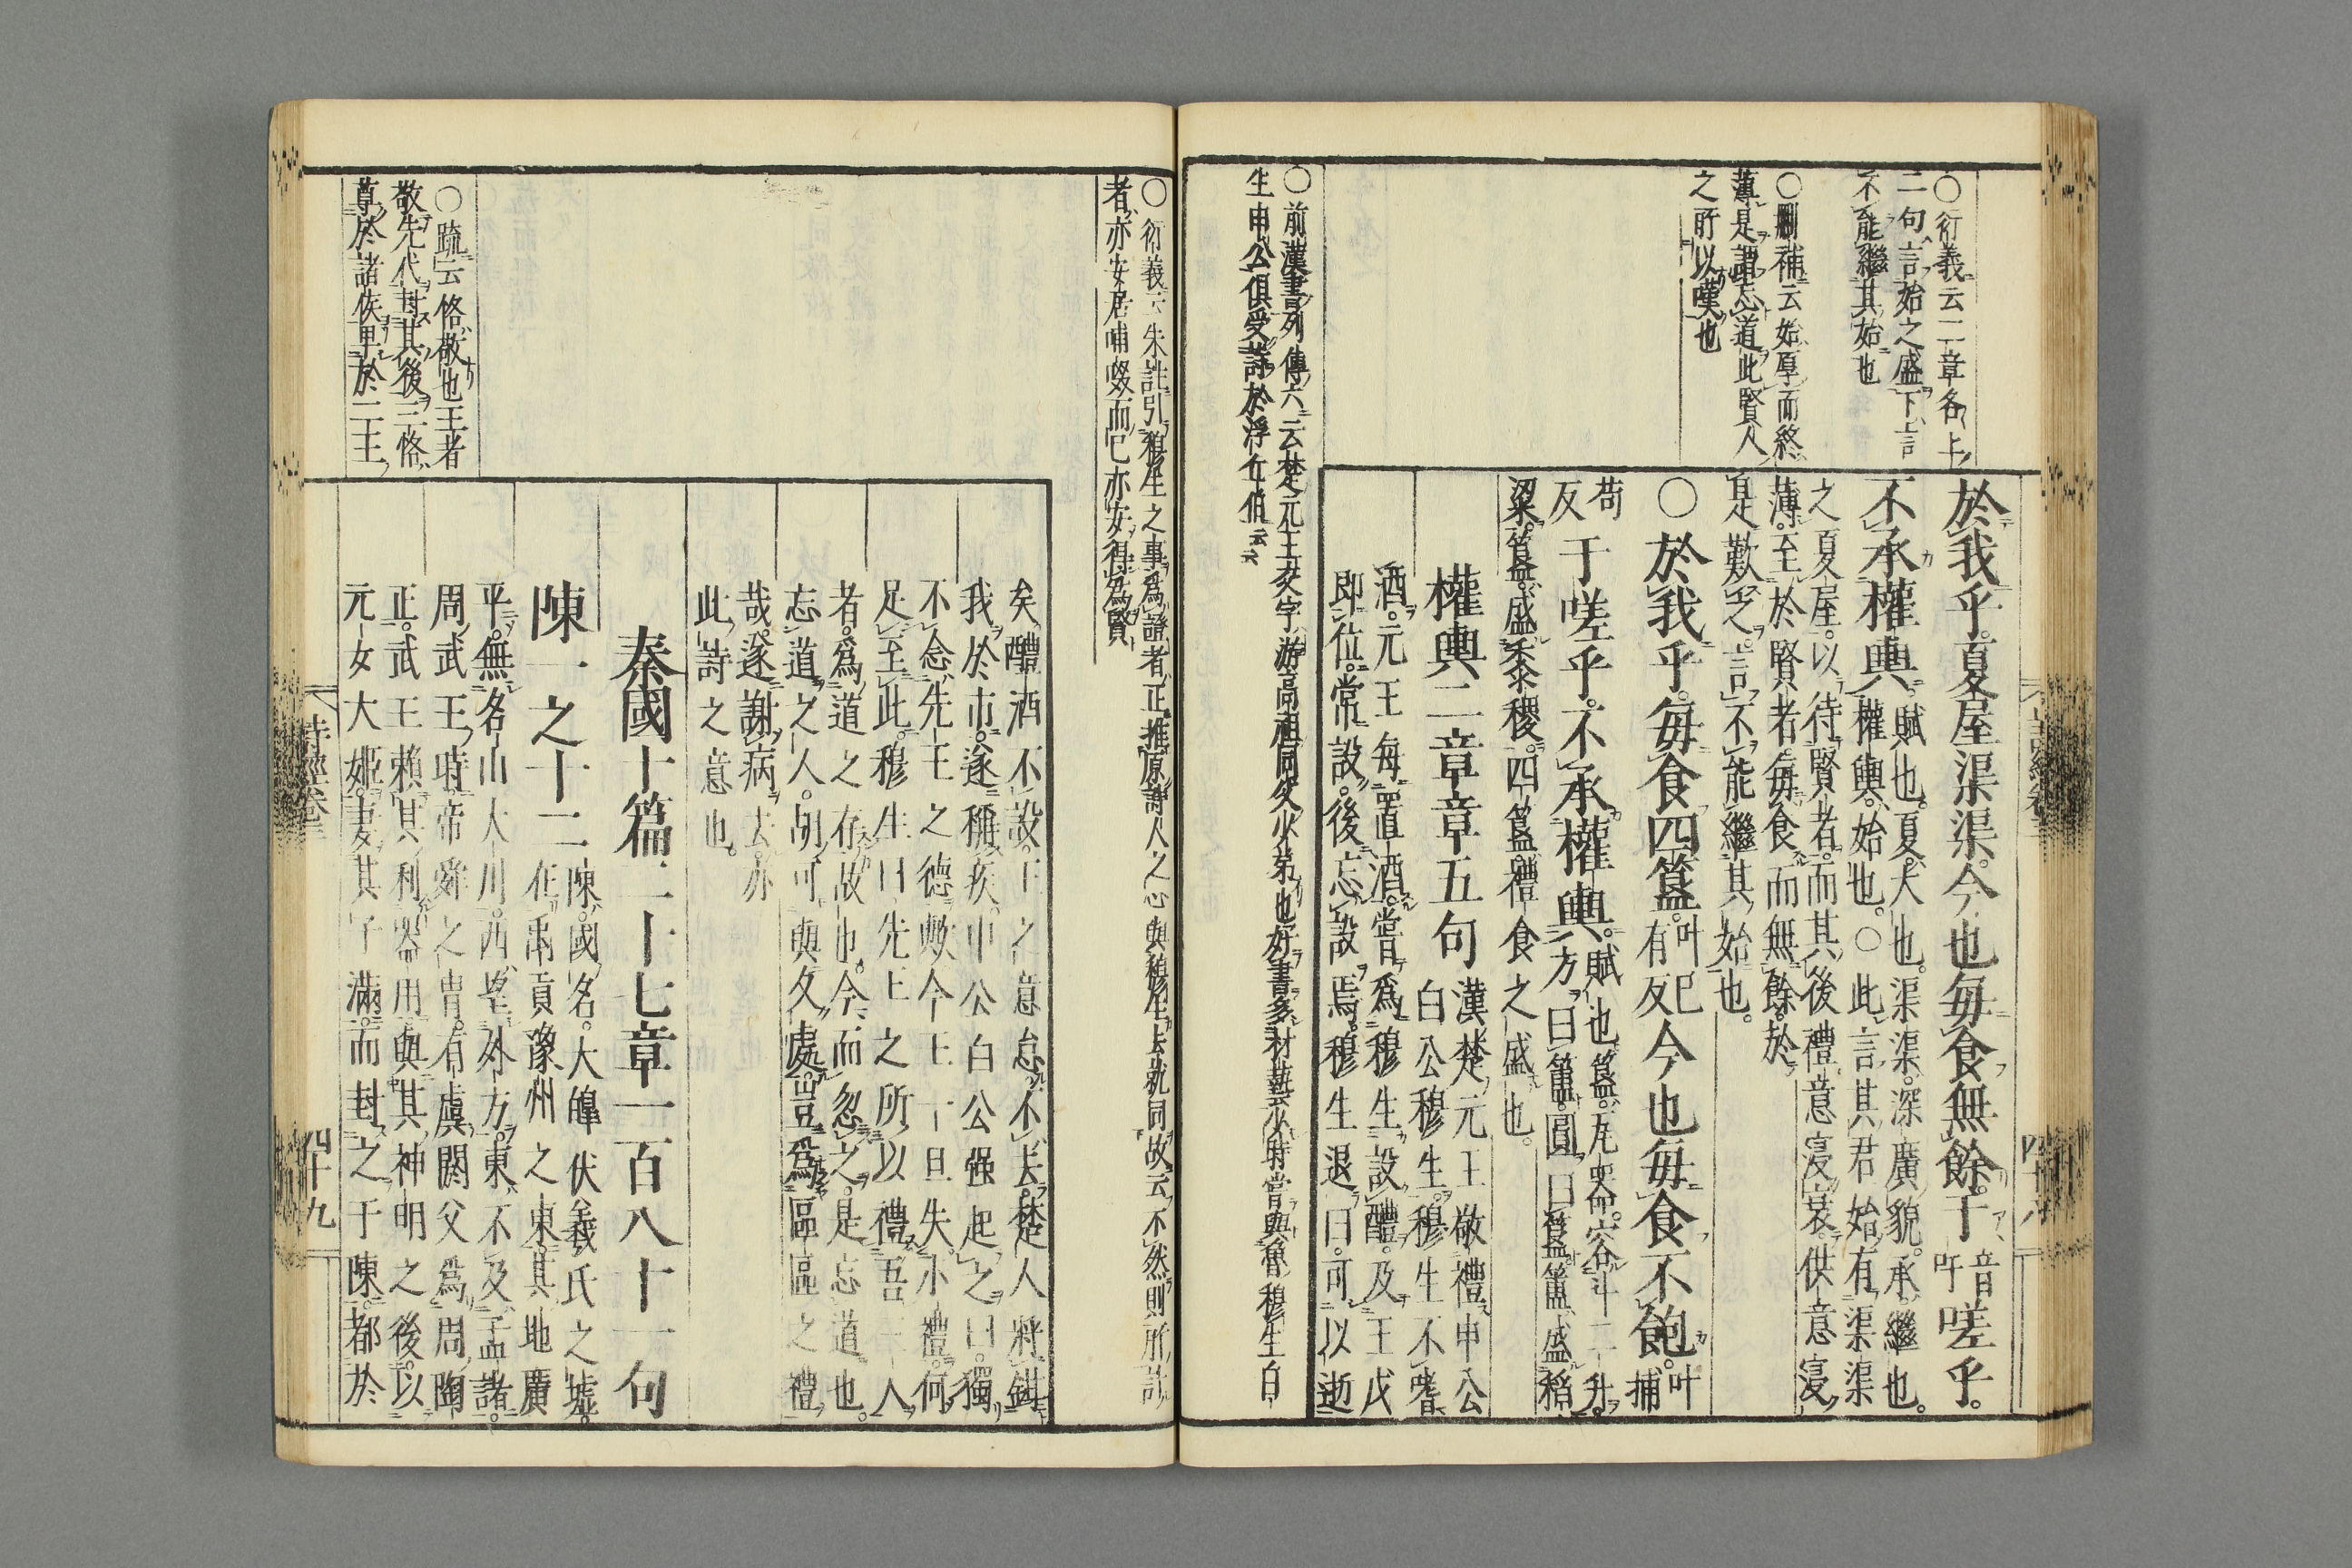 ○衍義云二章各上
二句言始之盛下言
不能繼其始也
○刪補云始厚而終
薄是謂忘道此賢人
之所以嘆也
於我乎夏屋渠渠今也毎食無餘于音吁嗟乎
不承權輿賦也夏大也渠渠深廣貌承繼也
權輿始也○此言其君始有渠渠
之夏屋以待賢者而其後禮意寖衰供意寖
薄至於賢者毎食而無餘於
是歎之言不能繼其始也
○於我乎毎食四簋叶巳有反今也毎食不飽叶捕
苟反于嗟乎不承權輿賦也簋瓦器容斗二升
方曰簠圓曰簋簠盛稻
粱簋盛黍稷四簋禮食之盛也
權輿二章章五句漢楚元王敬禮申公
白公穆生穆生不嗜
酒元王毎置酒嘗爲穆生設醴及王戊
即位常設後忘設焉穆生退曰可以逝
○前漢書列傳六云楚元王交字游高祖同父少弟也好書多材藝少時嘗與魯穆生白
生申公俱受詩於浮丘伯云云
○衍義云朱註引穆生之事爲證者正推原詩人之心與穆生去就同故云不然則所計
者亦安居哺啜而已亦安得爲賢
○疏云恪敬也王者
敬先代封其後三恪
尊於諸侯卑於二王
矣醴酒不設王之意怠不去楚人將鉗
我於市遂稱疾申公白公强起之曰獨
不念先王之德歟今王一旦失小禮何
足至此穆生曰先王之所以禮吾三人
者爲道之存故也今而忽之是忘道也
忘道之人胡可與久處豈爲區區之禮
哉遂謝病去亦
此詩之意也
秦國十篇二十七章一百八十一句
陳一之十二陳國名大皥伏羲氏之墟
在禹貢豫州之東其地廣
平無名山大川西望外方東不及孟諸
周武王時帝舜之冑有虞閼父爲周陶
正武王賴其利器用與其神明之後以
元女大姬妻其子滿而封之于陳都於
詩經卷三
四十九